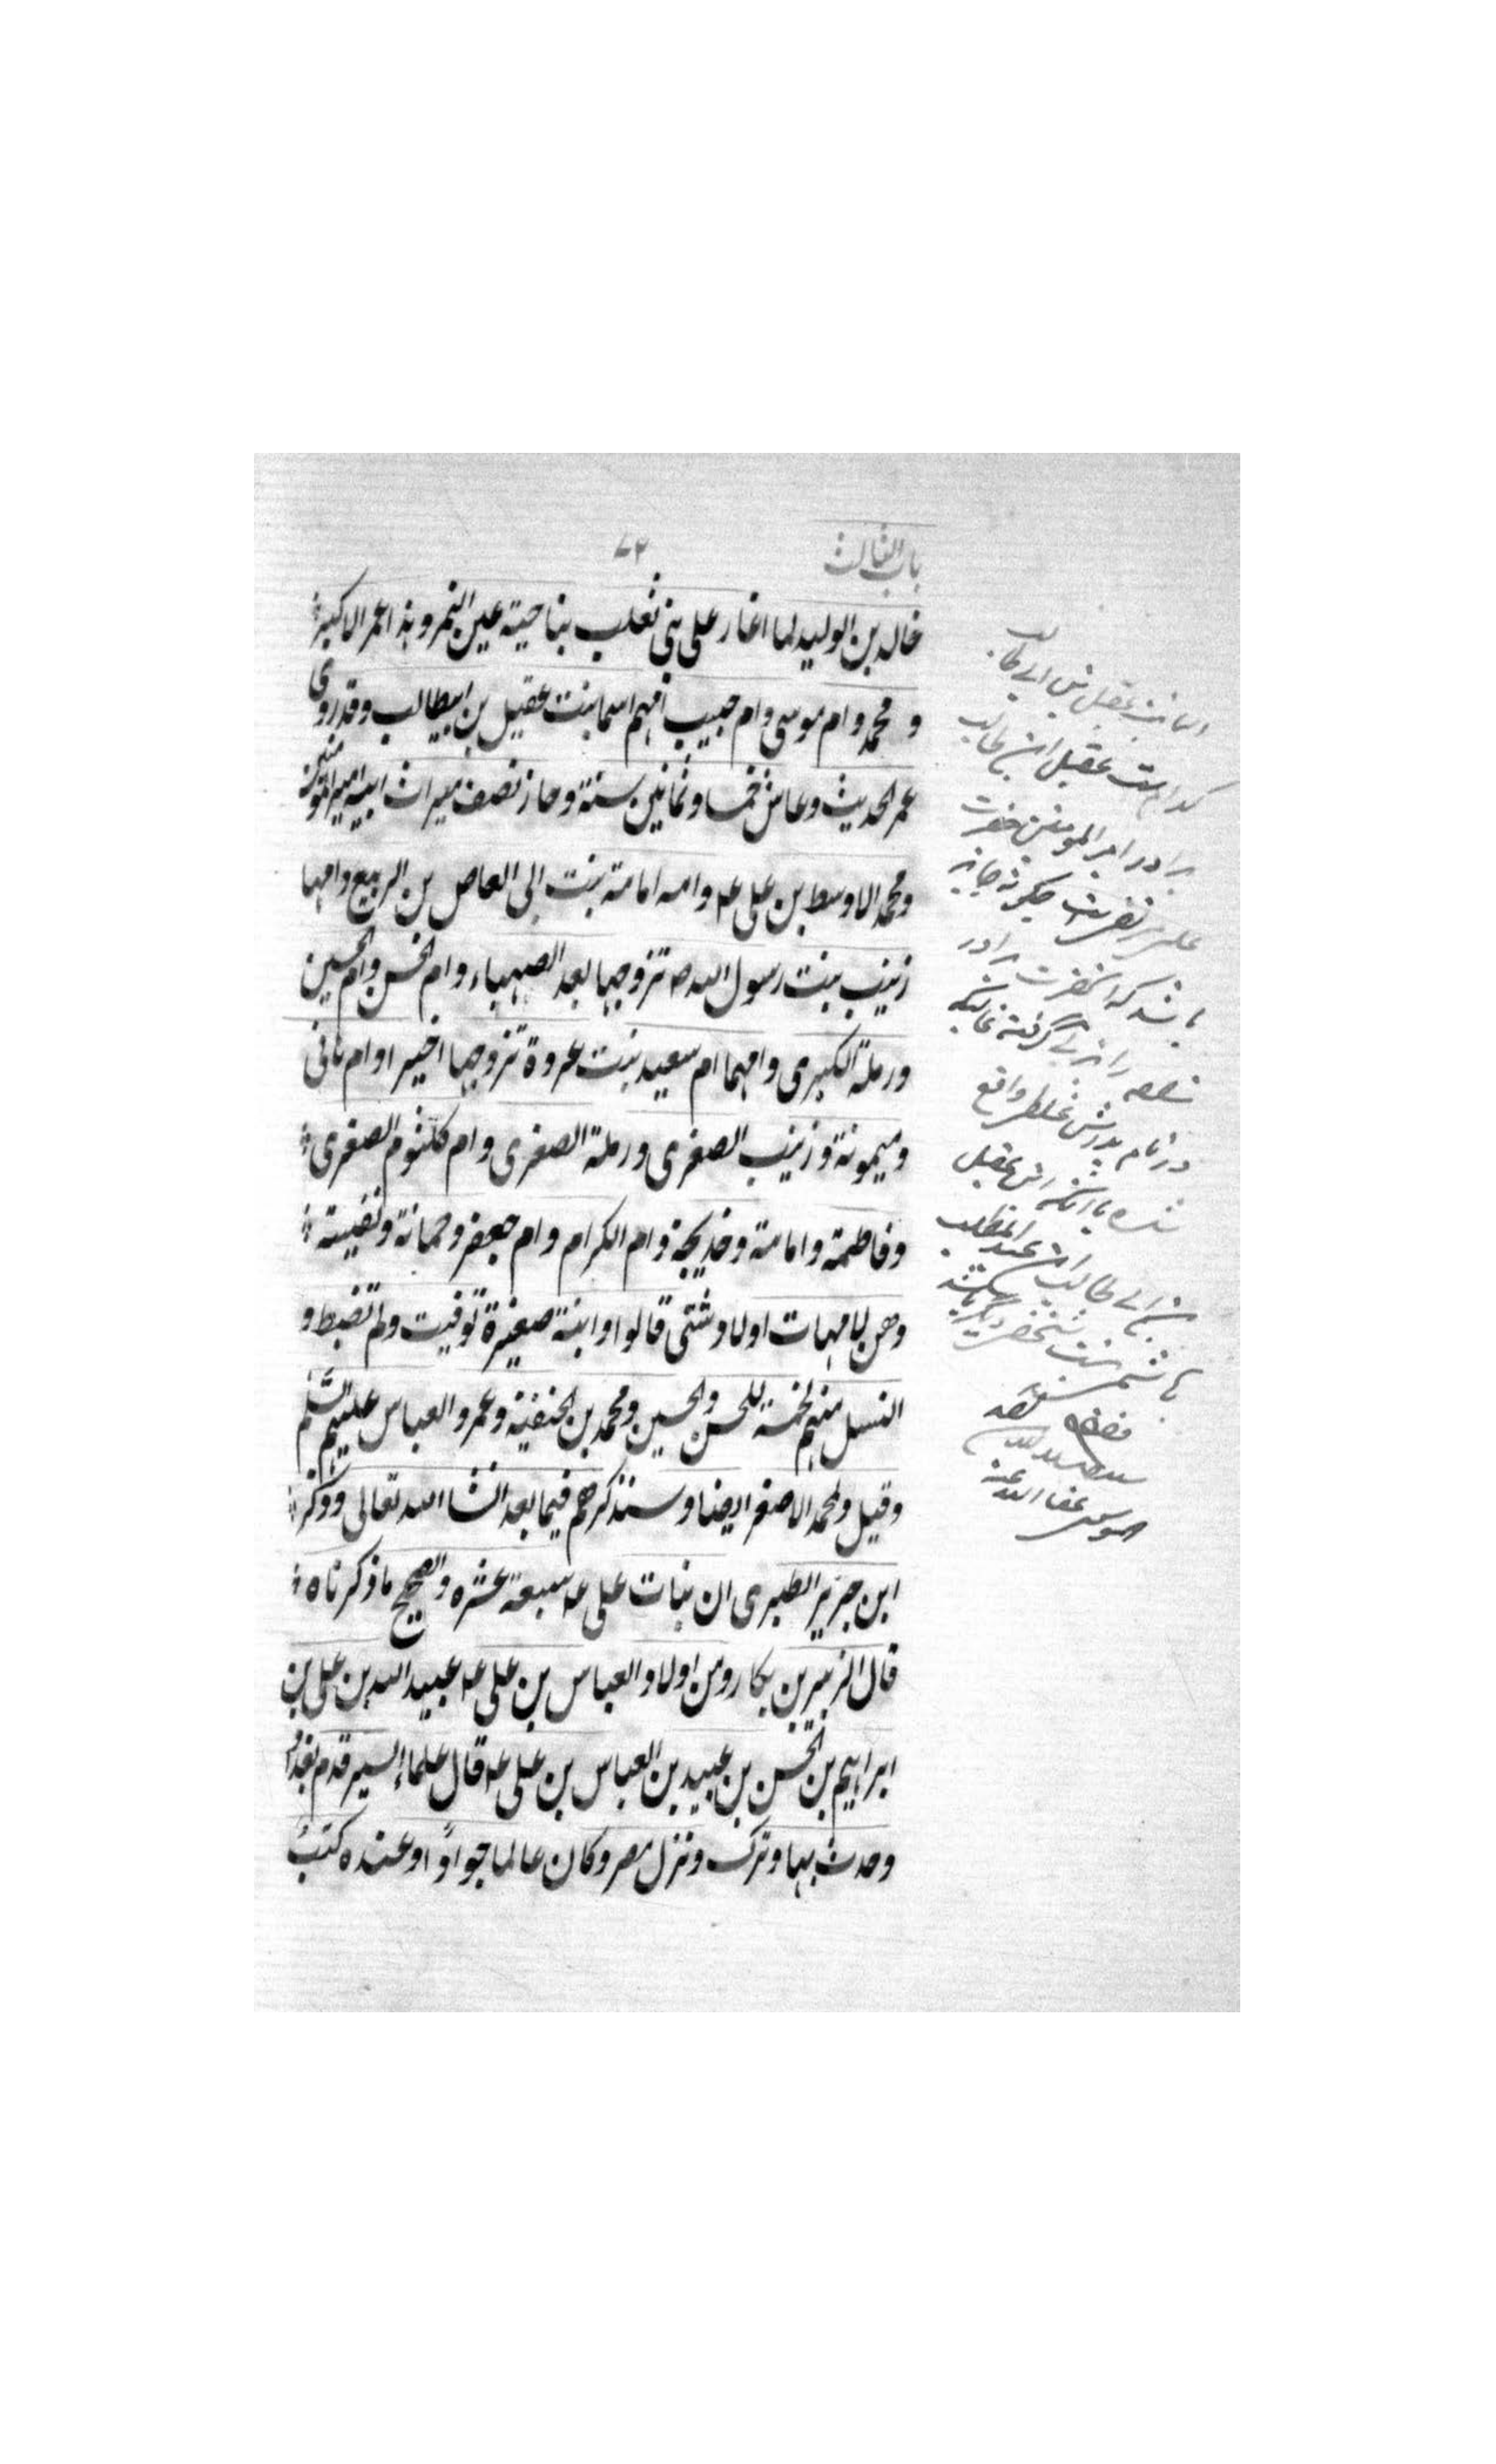 باب الثالث
۷۲
خالد بن الوليد لما اغار على بني تغلب بناحية عين التمر وهذا عمر الاكبر
و محمد وام موسى وام حبيب امهم اسما بنت عقيل بن ابيطالب وقد روى
عمر الحديث وعاش خمسا وثمانين سنة وحاز نصف ميراث ابيه امير المومنين
ومحمد الاوسط بن على ع وامه امامة بنت ابى العاص بن الربيع وامها
زينب بنت رسول الله ص تزوجها بعد الصهباء وام الحسن وام الحسين
ورملة الكبرى وامهما ام سعيد بنت عروة تزوجها اخيرا وام هانى
وميمونة وزينب الصغرى ورملة الصغرى وام كلثوم الصغرى
وفاطمة وامامة وخديجة وام الكرام وام جعفر وجمانة ونفيسة
وهن لامهات اولاد شتى قالوا وابنة صغيرة توفيت ولم تضبط و
النسل منهم لخمسة للحسن والحسين ومحمد بن الحنفية وعمر والعباس عليهم السلم
وقيل ولمحمد الاصغر ايضا وسنذكرهم فيما بعد انشا الله تعالى وذكر
ابن جرير الطبرى ان بنات على ع سبعة عشره والصحيح ما ذكرناه
قال الزبير بن بكار ومن اولاد العباس بن على ع عبيد الله بن على بن
ابراهيم بن الحسن بن عبيد بن العباس بن على ع قال علماء السير قدم بغداد
وحدث بها وترك ونزل مصر وكان عالما جوادًا وعنده كتب
اسما بنت عقيل بن ابى طالب
كدام است عقيل ابن ابى طالب
برادر امير المومنين حضرت
چگونه جايز
باشد كه آنحضرت برادر
را بزنى گرفته
در نام پدرش غلط واقع
شده يا آنكه ابن عقيل
بن ابى طالب ابن عبد المطلب
هاشم نيست شخص ديگر باشد
الموسوى عفا الله عنه